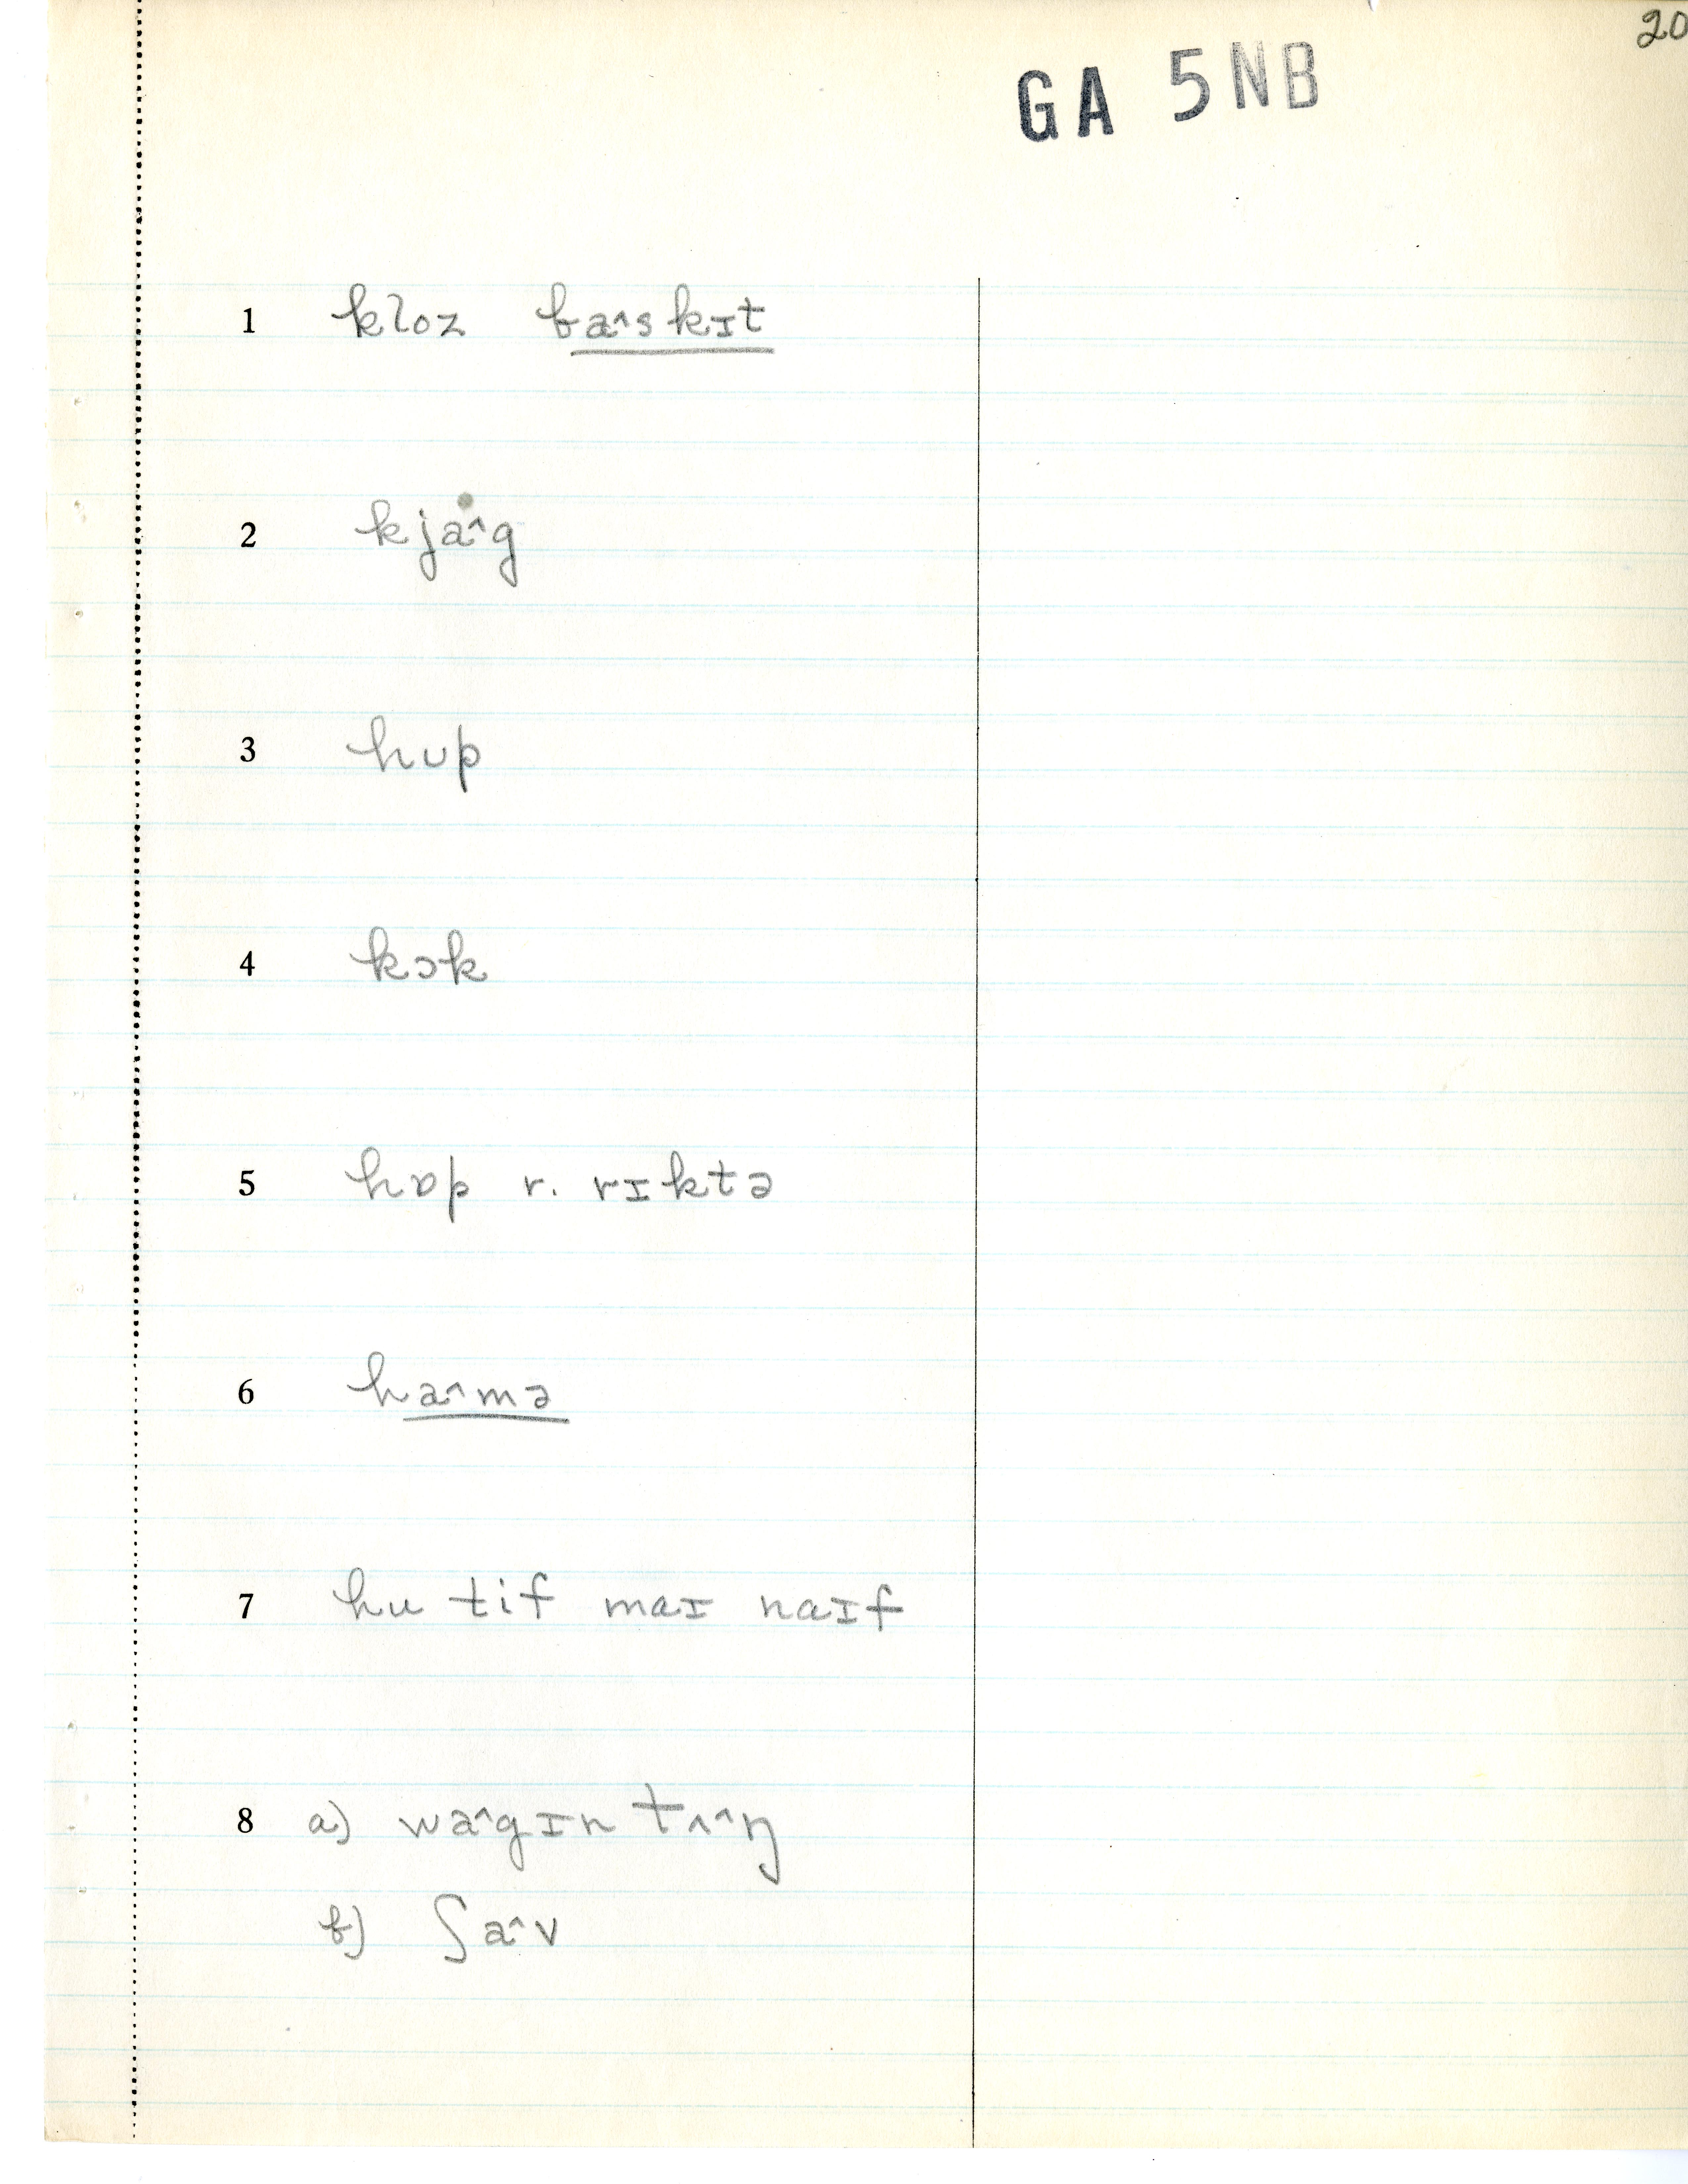 20
GA 5NB
1 kloz ba^skɪt
2 kja^g
3 hup
4 kɔk
5 hɒp r. rɪktə
6 ha^mə
7 hu tif maɪ naɪf
8 a) wa^gɪn tʌ^ŋ
b) ʃa^v